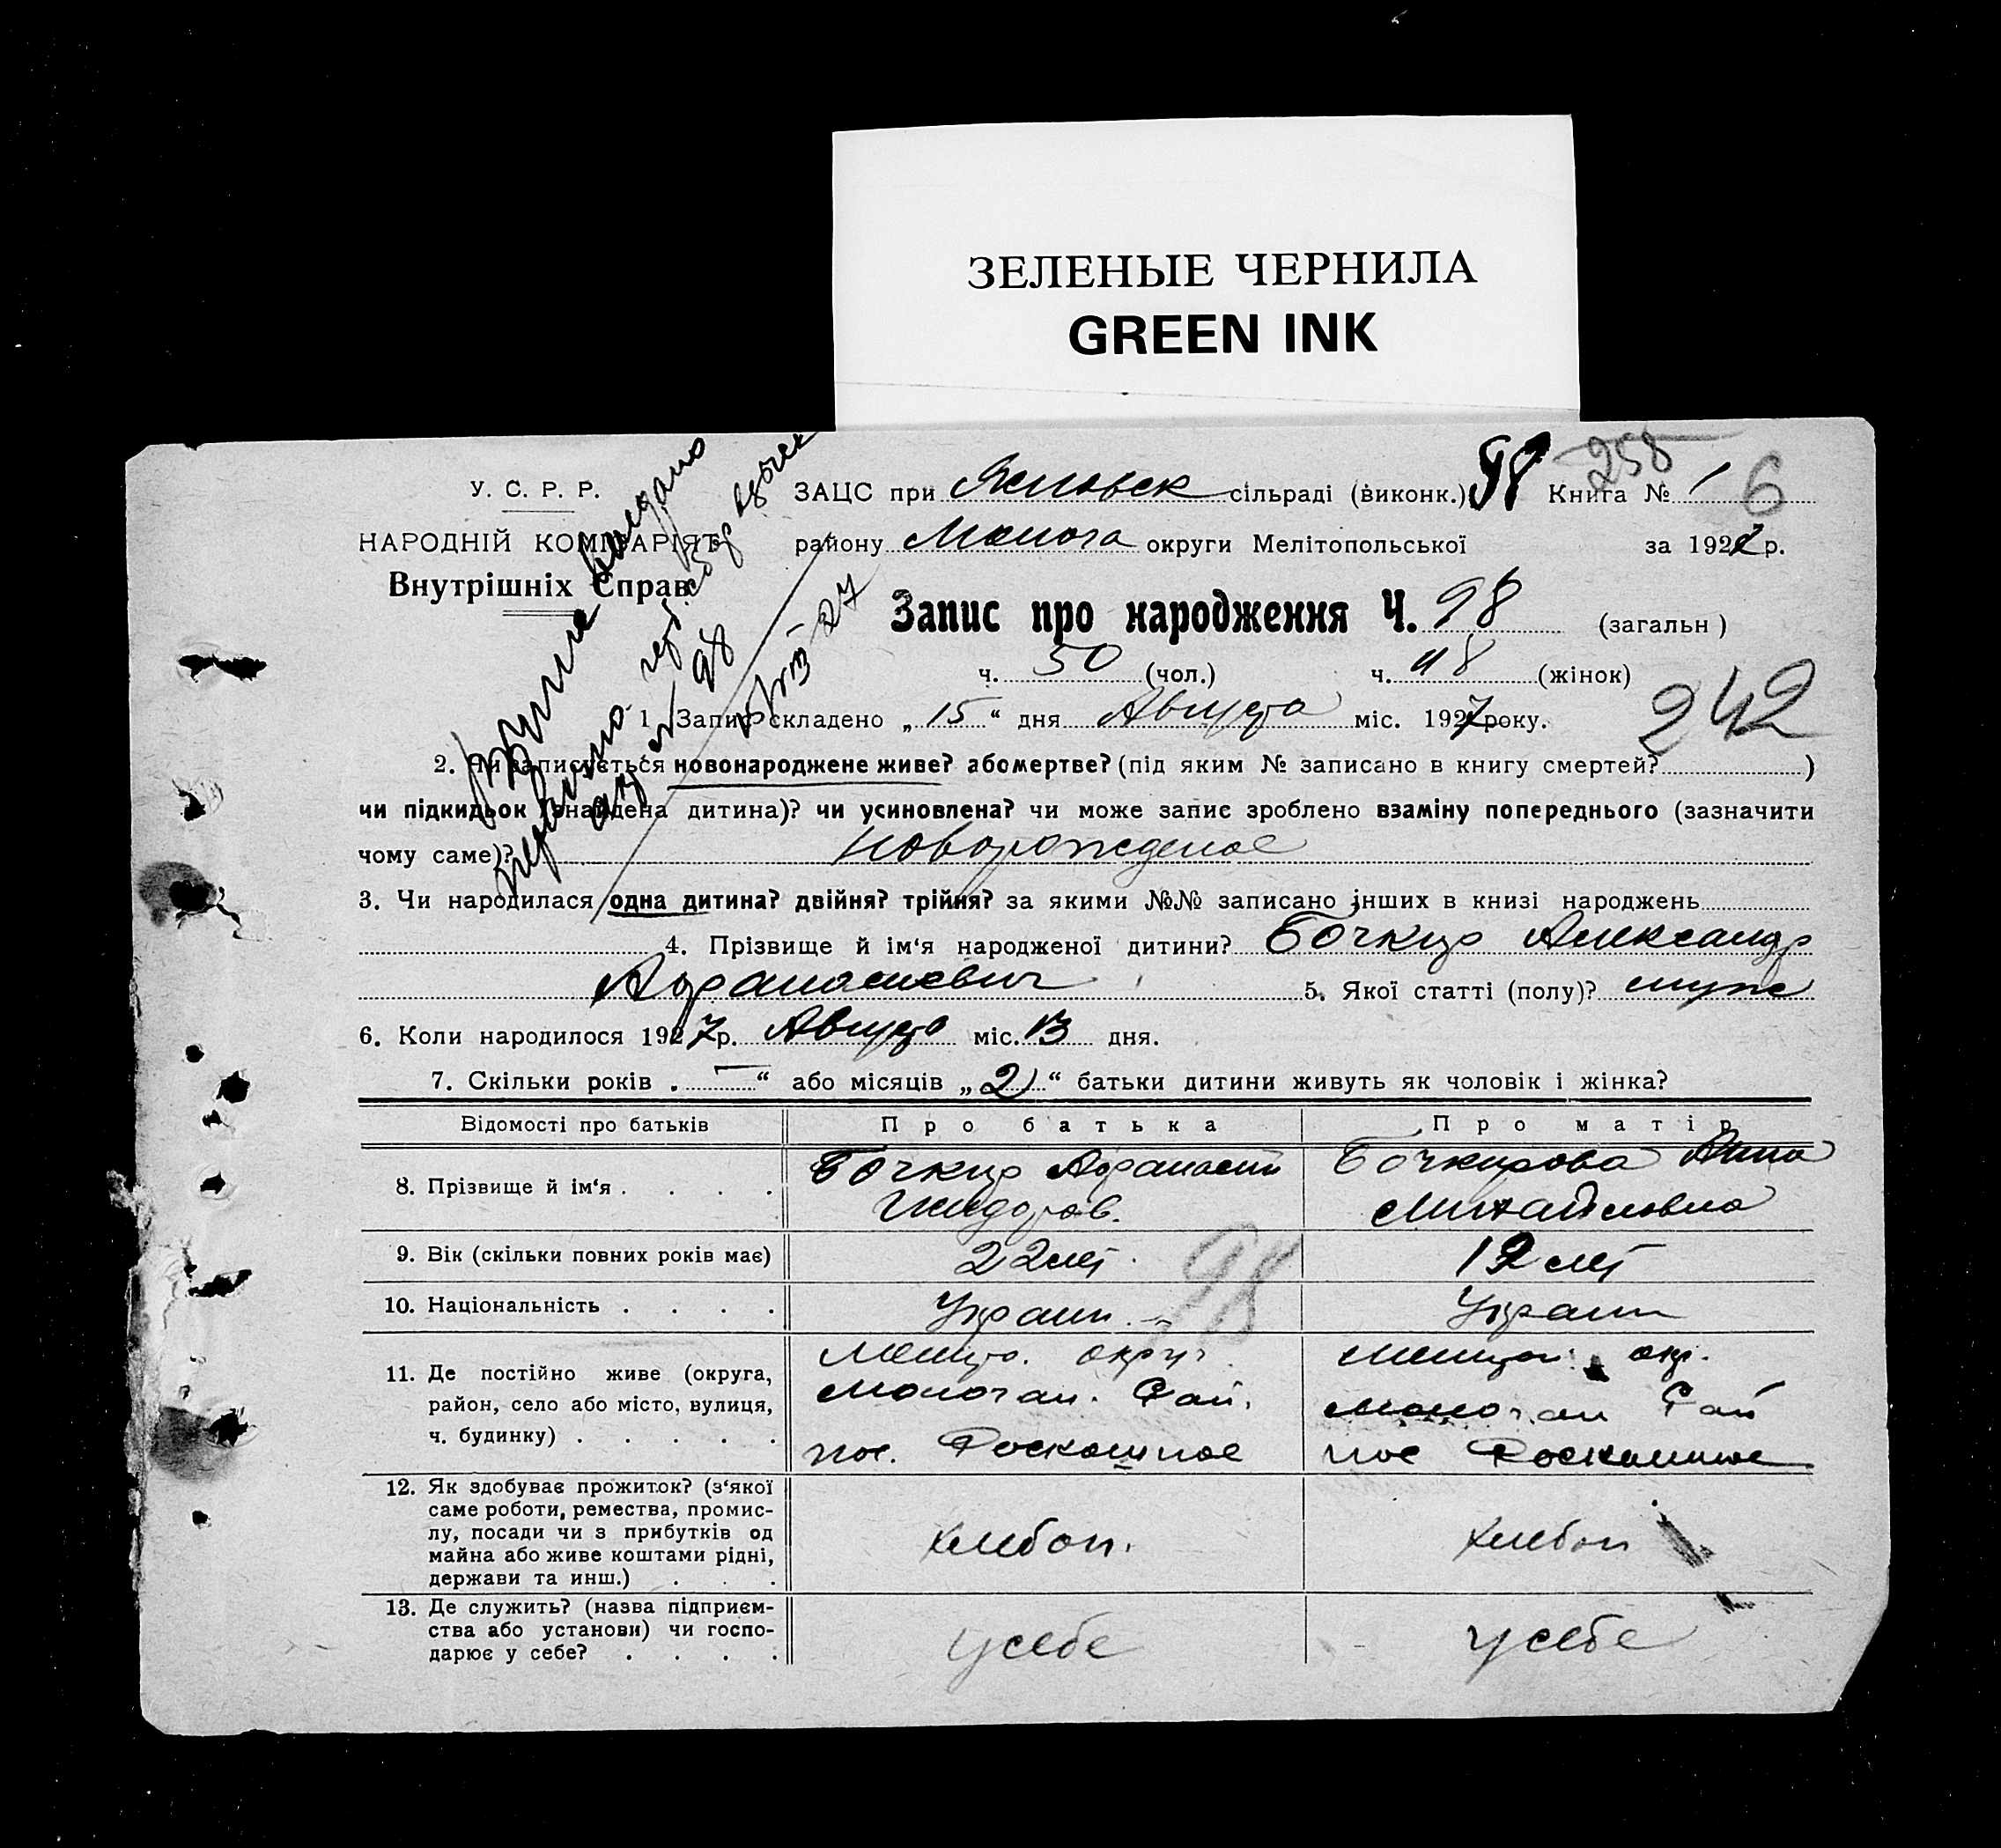 ЗЕЛЕНЫЕ ЧЕРНИЛА
GREEN INK
258
У. С. Р. Р.
ЗАЦС при сільраді (виконк.) 98 Книга № 1 6
НАРОДНІЙ КОМІСАРІЯТ
району округи Мелітопольської за 1927 р.
Внутрішніх Справ
Запис про народження Ч. 98 (загальн)
ч. 50 (чол.) ч. 48 (жінок)
242
1 Запис складено „15“ дня Августа міс. 1927 року.
2. Чи записується новонароджене живе? або мертве? (під яким № записано в книгу смертей? )
чи підкидьок (знайдена дитина)? чи усиновлена? чи може запис зроблено взаміну попереднього (зазначити
чому саме)? Новорожденое
3. Чи народилася одна дитина? двійня? трійня? за якими №№ записано інших в книзі народжень
4. Прізвище й ім‘я народженої дитини? Бочкир Александр
Афанасиевич 5. Якої статті (полу)? муже
6. Коли народилося 1927 р. Августа міс. 13 дня.
7. Скільки років „ — “ або місяців „2“ батьки дитини живуть як чоловік і жінка?
Відомості про батьків Про батька Про матір
8. Прізвище й ім‘я . . . .
Бочкир Афанасий
Исидоров.
Бочкирова Анна
Михайловна
9. Вік (скільки повних років має) 22 лет 19 лет
98
10. Національність . . . . Украин. Украин
11. Де постійно живе (округа,
район, село або місто, вулиця,
ч. будинку) . . . . .
Мелито. округ.
Молочан. Рай.
пос. Роскошное
Мелитоп. окр.
Молочан Рай
пос Роскошное
12. Як здобуває прожиток? (з‘якої
саме роботи, ремества, промис-
лу, посади чи з прибутків од
майна або живе коштами рідні,
держави та инш.) . . .
хлебоп.
хлебоп
13. Де служить? (назва підприєм-
ства або установи) чи госпо-
дарює у себе? . . . .
у себе
у себе